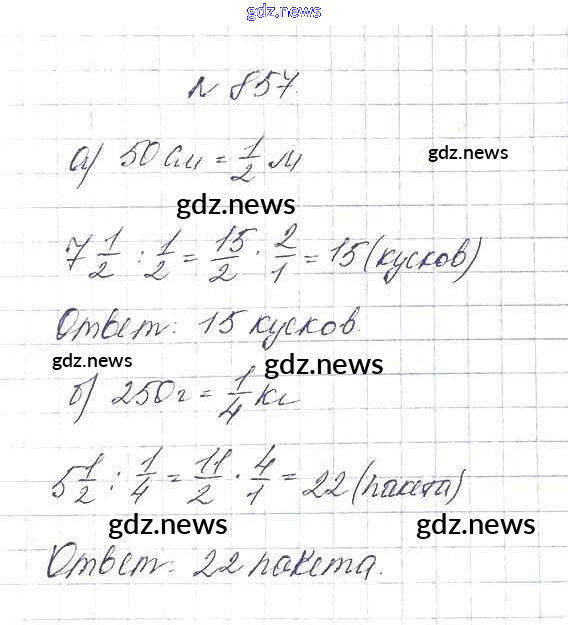 gdz.news
№ 857.
а) 50 см = 1/2 м
gdz.news
gdz.news
7 1/2 : 1/2 = 15/2 · 2/1 = 15 (кусков)
Ответ: 15 кусков.
gdz.news
gdz.news
б) 250 г = 1/4 кг
5 1/2 : 1/4 = 11/2 · 4/1 = 22 (пакета)
gdz.news
gdz.news
Ответ: 22 пакета.